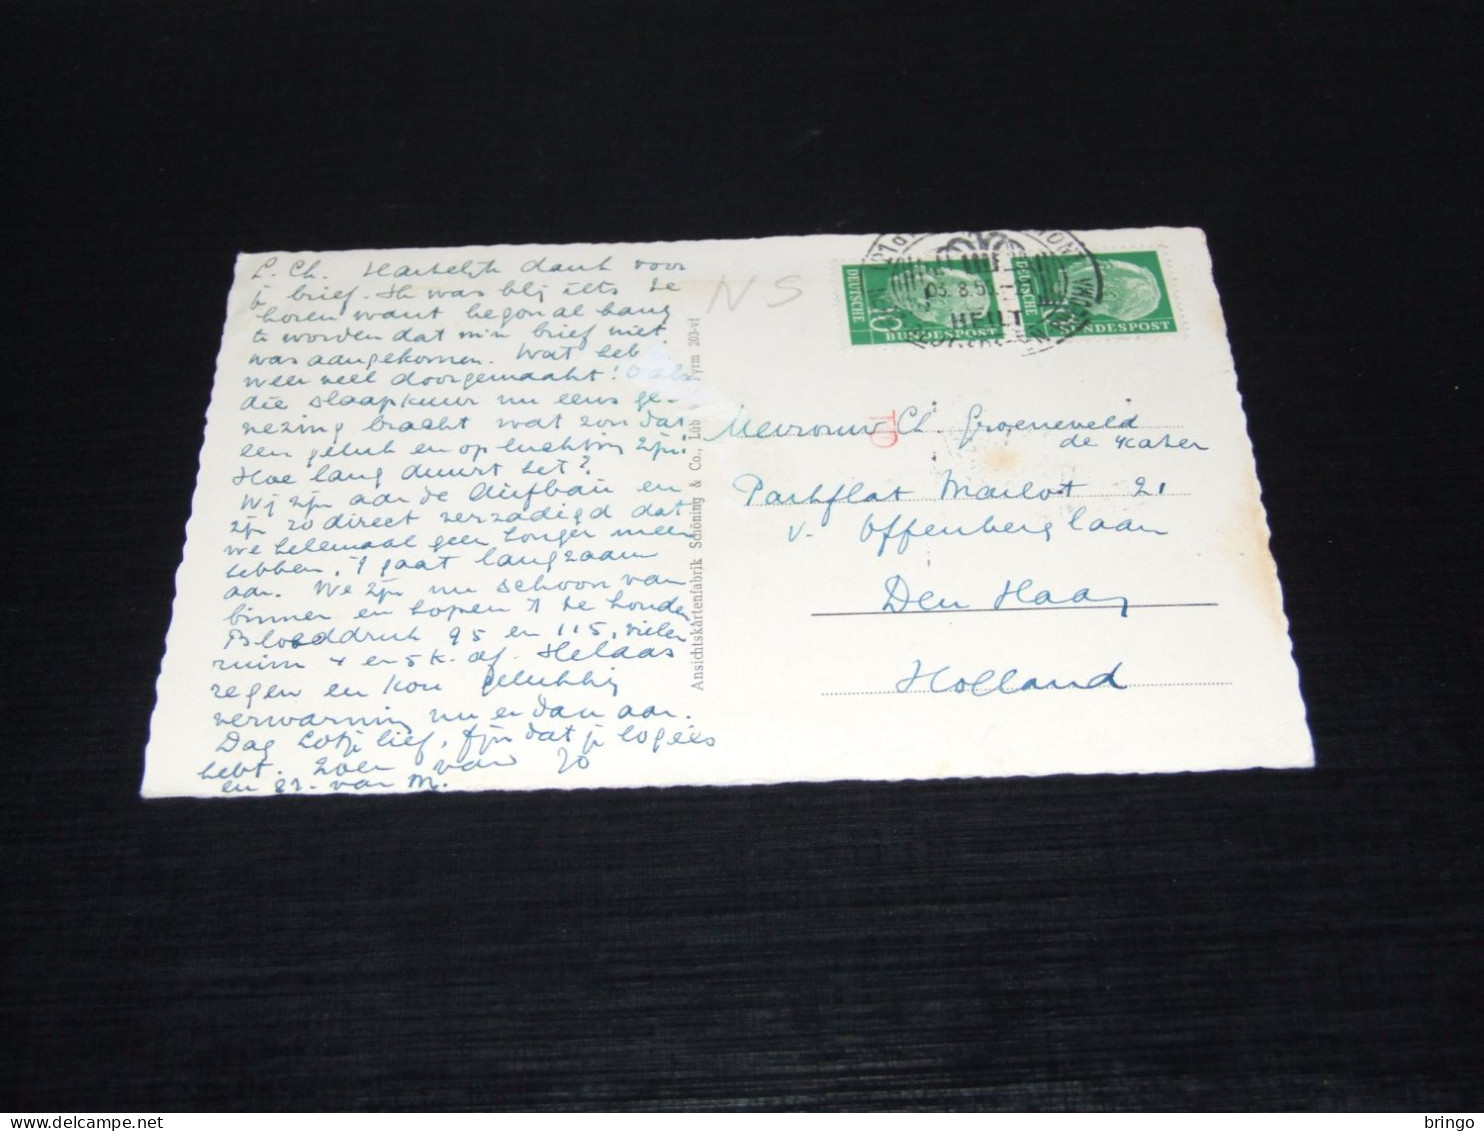 L. Ch. Hartelijk dank voor
je brief. Ik was blij iets te
horen want begon al bang
te worden dat m'n brief niet
was aangekomen. Wat heb
weer veel doorgemaakt!
die slaapkuur nu eens ge-
nezing bracht wat zou dat
een geluk en opluchting zijn!
Hoe lang duurt het?
Wij zijn aan de Aufbau en
zijn zo direct verzadigd dat
we helemaal geen honger meer
hebben, 't gaat langzaam
aan. We zijn nu schoon van
binnen en hopen 't te houden
Bloeddruk 95 en 115, vielen
ruim 4 en 5 k. af. Helaas
regen en kou gelukkig
verwarming nu en dan aan.
Dag Lotje lief, fijn dat je logées
hebt. Zoen van
en van M.
Ansichtskartenfabrik Schöning & Co., Lüb Pyrm 203-vf
NS
DEUTSCHE
10
BUNDESPOST
DEUTSCHE
BUNDESPOST
03.8.5
HEILT
Mevrouw Ch. Groeneveld
de Kater
Parkflat Marlot 21
v. Offenberglaan
Den Haag
Holland
bringo